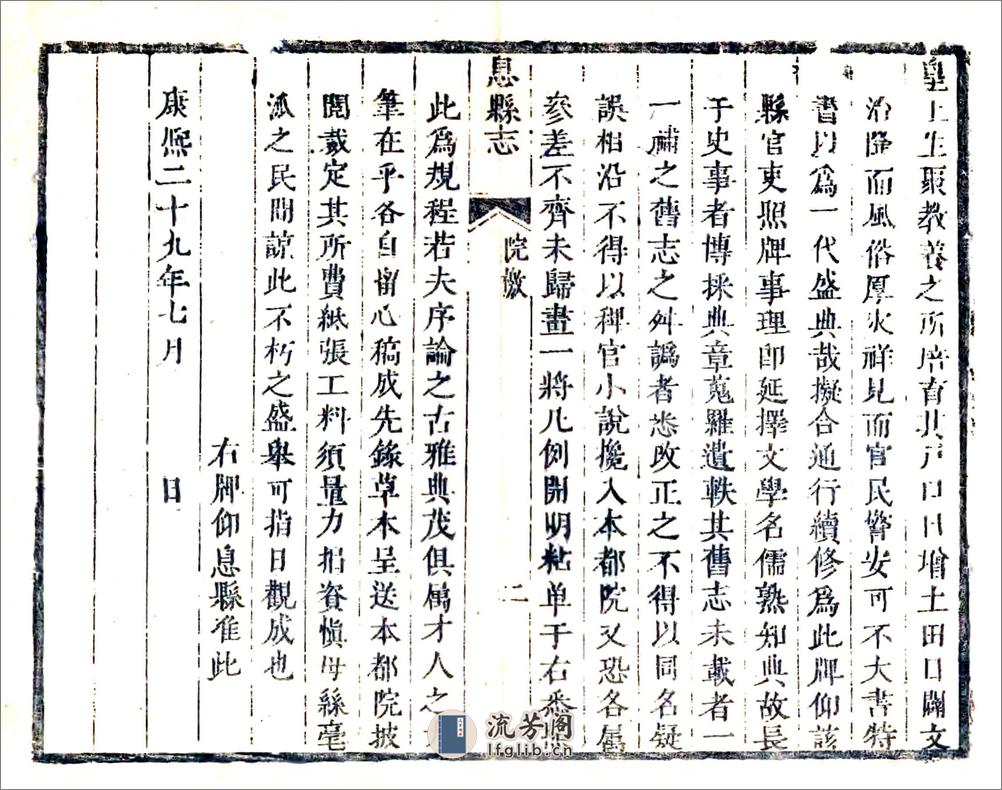 皇上生聚教養之所培育其戶口日增土田日闢文
治隆而風俗厚災祥見而官民警安可不大書特
書以爲一代盛典哉擬合通行續修爲此牌仰該
縣官吏照牌事理卽延擇文學名儒熟知典故長
于史事者博採典章蒐羅遺軼其舊志未載者一
一補之舊志之舛譌者悉改正之不得以同名疑
誤相沿不得以稗官小說攙入本都院又恐各屬
參差不齊未歸畫一將凡例開明粘单于右悉
息縣志
院檄
二
此爲規程若夫序論之古雅典茂俱属才人之
筆在乎各自留心稿成先錄草本呈送本都院披
閱裁定其所費紙張工料須量力捐資愼毋絲毫
派之民間諒此不朽之盛舉可指日觀成也
右牌仰息縣准此
康熙二十九年七月 日
流芳阁
lfglib.cn